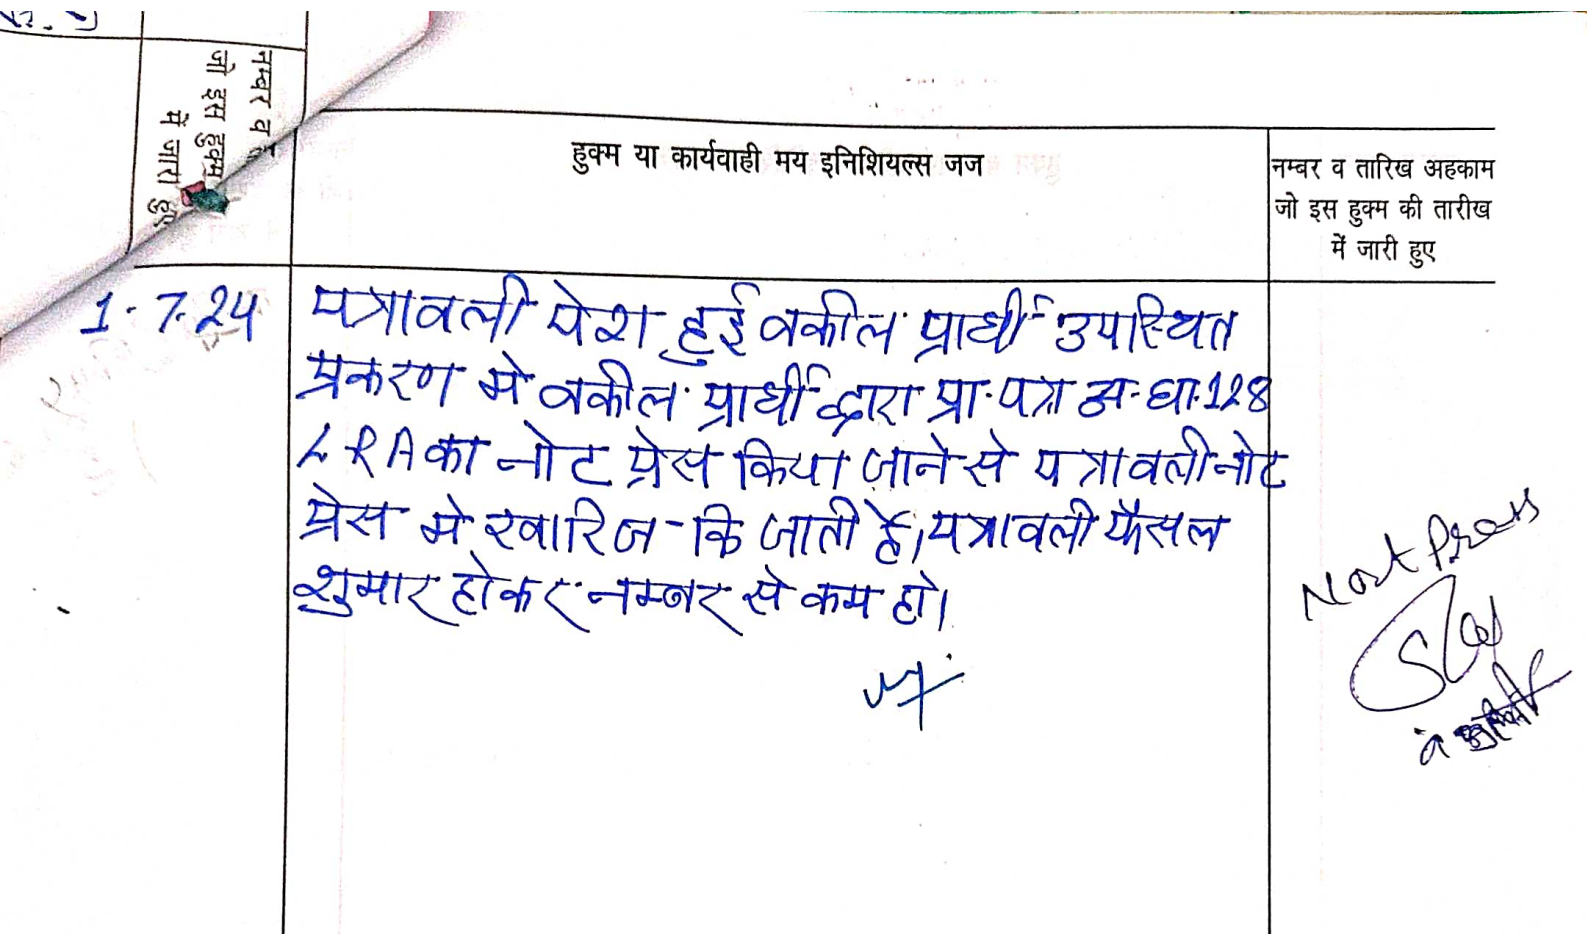 नम्बर व
जो इस हुक्म
में जारी हुए
हुक्म या कार्यवाही मय इनिशियल्स जज
नम्बर व तारिख अहकाम
जो इस हुक्म की तारीख
में जारी हुए
1.7.24
पत्रावली पेश हुई वकील प्रार्थी उपस्थित
प्रकरण मे वकील प्रार्थी द्वारा प्रा.पत्र अ.धा.128
LRA का नोट प्रेस किया जाने से पत्रावली नोट
प्रेस मे खारिज कि जाती है। पत्रावली फैसल
शुमार होकर नम्बर से कम हो।
Not Press